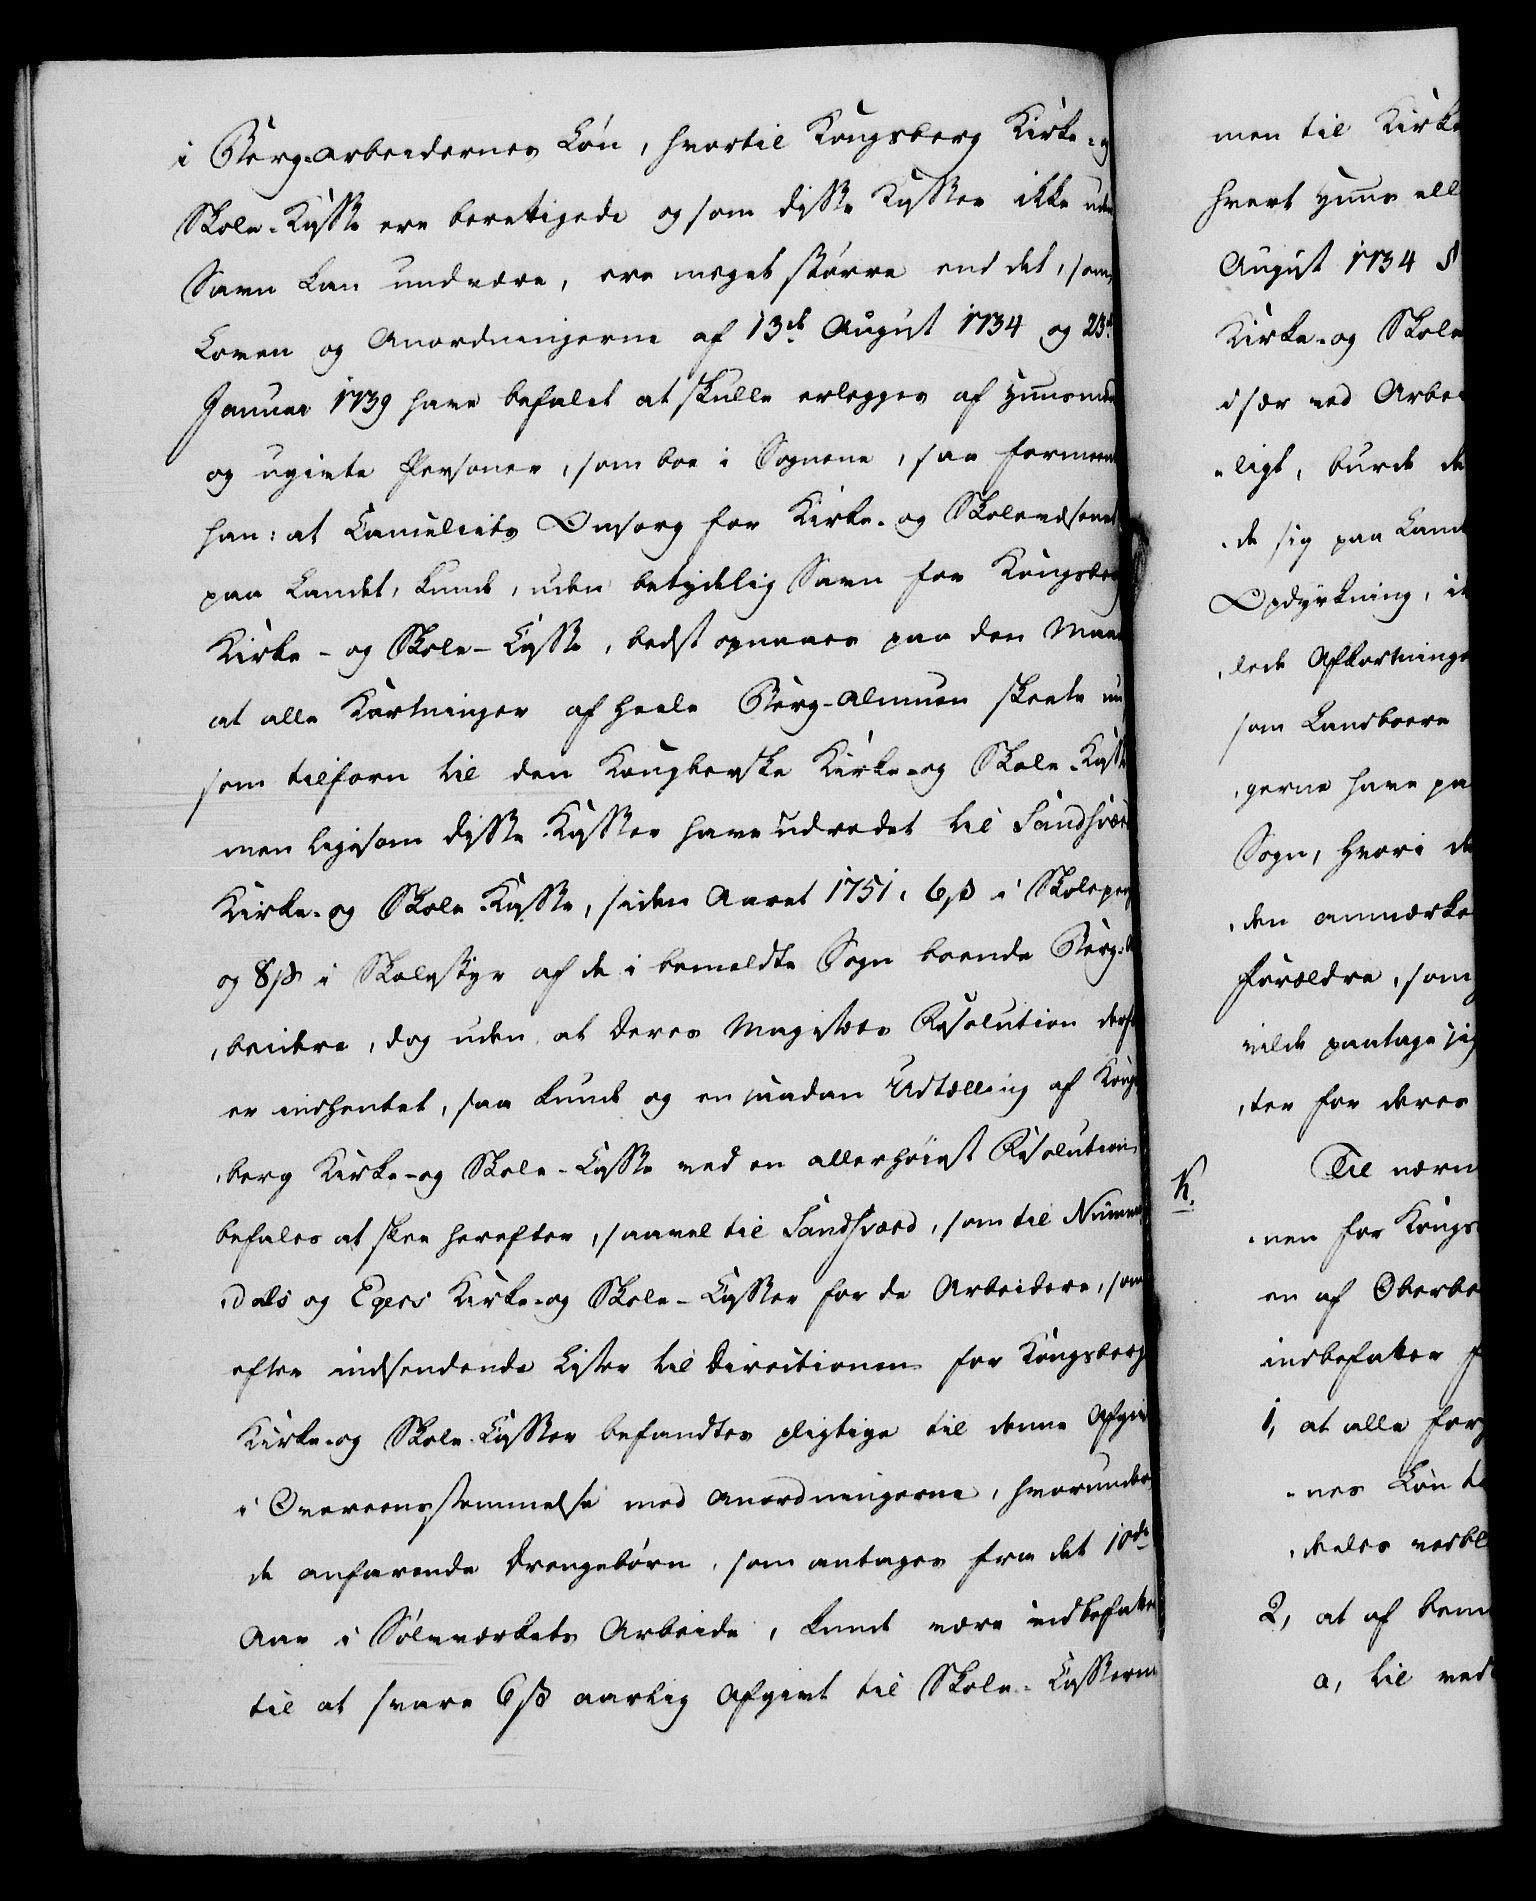 i Berg-Arbeidernes Løn, hvortil Kongsberg Kirke- og
Skole-Kasse ere berettigede og som disse Kasser ikke uden
Savn kan undvære, ere meget større end det, som
Loven og Anordningerne af 13de August 1734 og 23de
Januar 1739 have befalet at skulle erlegges af Huusmænd
og ugivte Personer, som boe i Sognene, saa formeente
han: at Cancelliets Omsorg for Kirke- og Skolevæsenet
paa Landet, kunde, uden betydelig Savn for Kongsberg
Kirke- og Skole-Casse, bedst opnaaes paa den Maade
at alle Kortninger af heele Berg-Almuen skeete nu
som tilforn til den Kongbergske Kirke- og Skole-Kasse
men ligesom disse Kasser have udredet til Sandsværds
Kirke- og Skole-Kasse, siden Aaret 1751, 6 ß i Skolepenge
og 8 ß i Skoleskyr af de i bemeldte Sogn boende Berg-Ar
beidere, dog uden at Deres Majestæts Resolution derfor
er indhentet, saa kunde og en saadan Udtælling af Kongs
berg Kirke- og Skole-Casse ved en allerhøiest Resolution
befales at skee herefter, saavel til Sandsværd, som til Numme
dals og Egers Kirke- og Skole-Casser for de Arbeidere, som
efter indsendende Lister til Directionen for Kongsbergs
Kirke- og Skole-Casser befandtes pligtige til denne Afgivt
i Overeensstemmelse med Anordningerne, hvorunder
de anfarende Drengebørn, som antages fra det 10de
Aar i Sølvværkets Arbeide, kunde være indbefattede
til at svare 6 ß aarlig Afgivt til Skole-Casserne
men til Kirke
hvert Huus ell
August 1734 §
Kirke- og Skole
især ved Arbei
ligt, burde de
de sig paa Land
Opdyrkning, i
lede Afkortninge
som Landboere
gerne have pa
Sogn, hvori de
den anmærke
Forældre, som
vilde paatage sig
ter for deres
Til nærm
K.
nen for Kongs
en af Oberbe
indbefatter f
1, at alle for
nes Løn t
deeles vedbl
2, at af bem
a, til ved